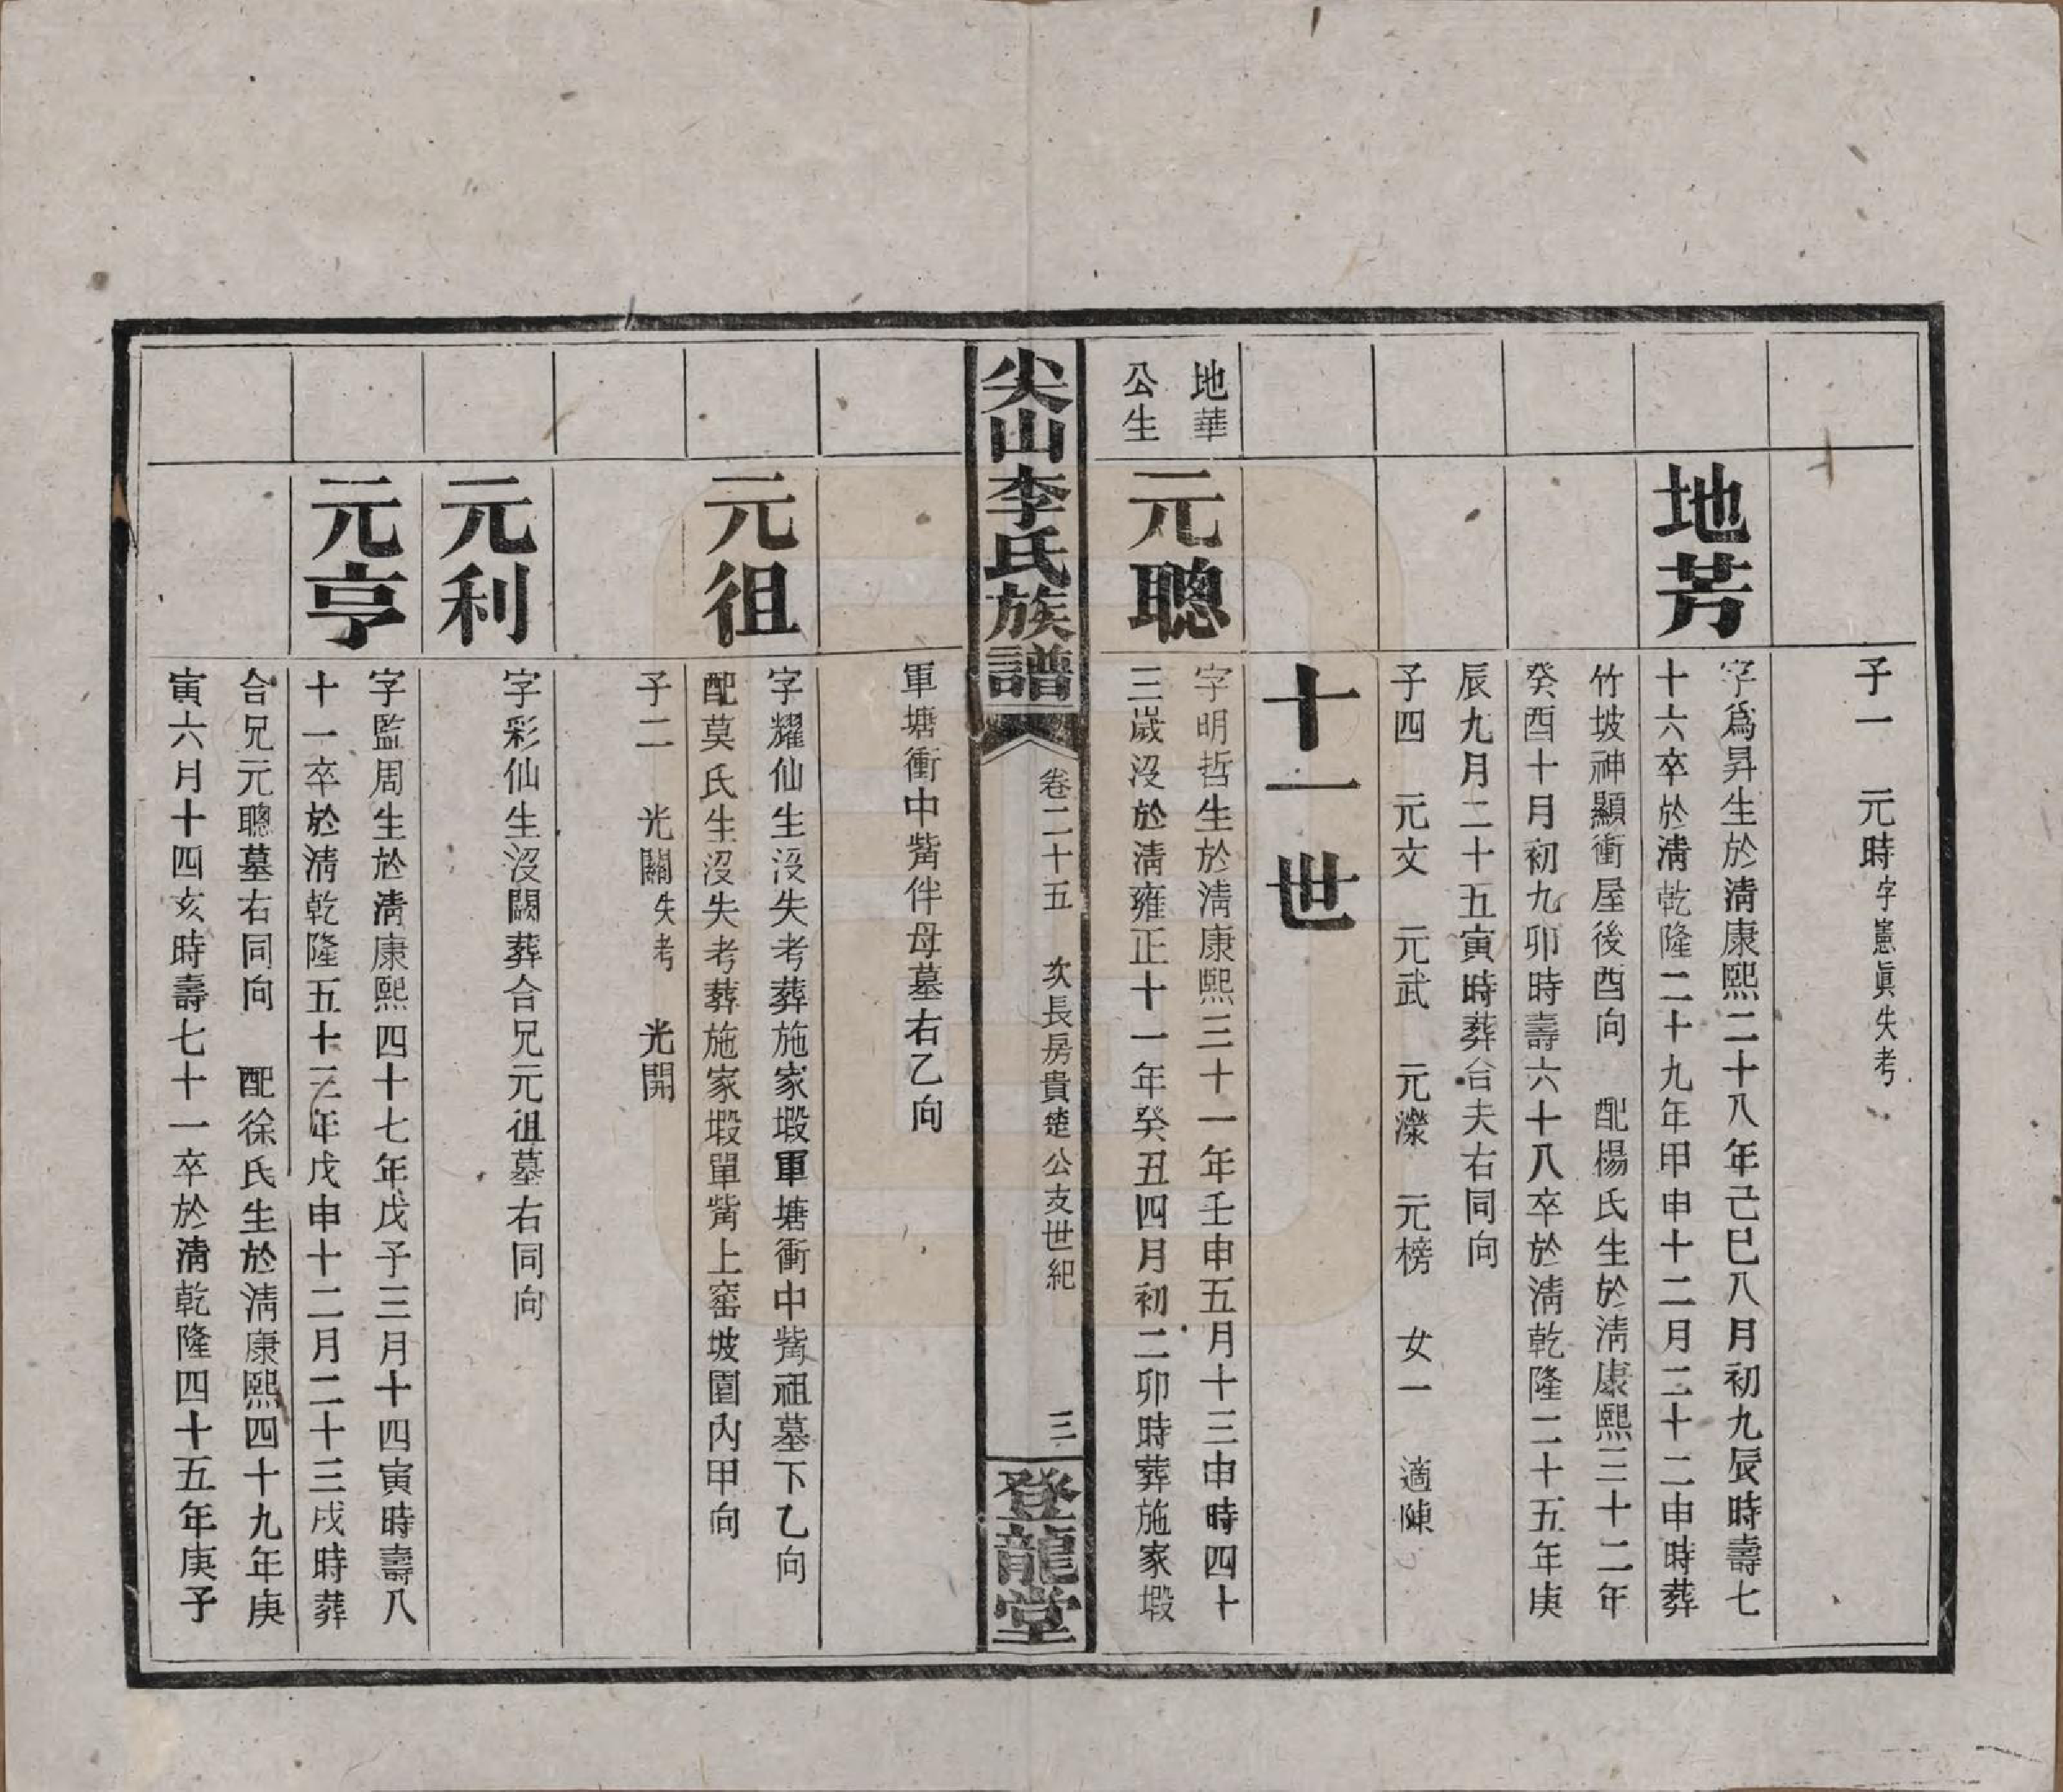 子一 元時字憲眞失考
地芳
字爲昇生於淸康熙二十八年己巳八月初九辰時壽七
十六卒於淸乾隆二十九年甲申十二月三十二申時葬
竹坡神顯衝屋後酉向 配楊氏生於淸康熙三十二年
癸酉十月初九卯時壽六十八卒於淸乾隆二十五年庚
辰九月二十五寅時葬合夫右同向
子四 元文 元武 元濚 元榜 女一 適陳
十一世
地華
公生
元聰
字明哲生於淸康熙三十一年壬申五月十三申時四十
三歲沒於淸雍正十一年癸丑四月初二卯時葬施家塅
尖山李氏族譜
卷二十五 次長房貴楚公支世紀 三
登龍堂
軍塘衝中觜伴母墓右乙向
元徂
字耀仙生沒失考葬施家塅軍塘衝中觜祖墓下乙向
配莫氏生沒失考葬施家塅單觜上窰坡園內甲向
子二 光闢失考 光開
元利
字彩仙生沒闕葬合兄元徂墓右同向
元亨
字監周生於淸康熙四十七年戊子三月十四寅時壽八
十一卒於淸乾隆五十三年戊申十二月二十三戌時葬
合兄元聰墓右同向 配徐氏生於淸康熙四十九年庚
寅六月十四亥時壽七十一卒於淸乾隆四十五年庚子